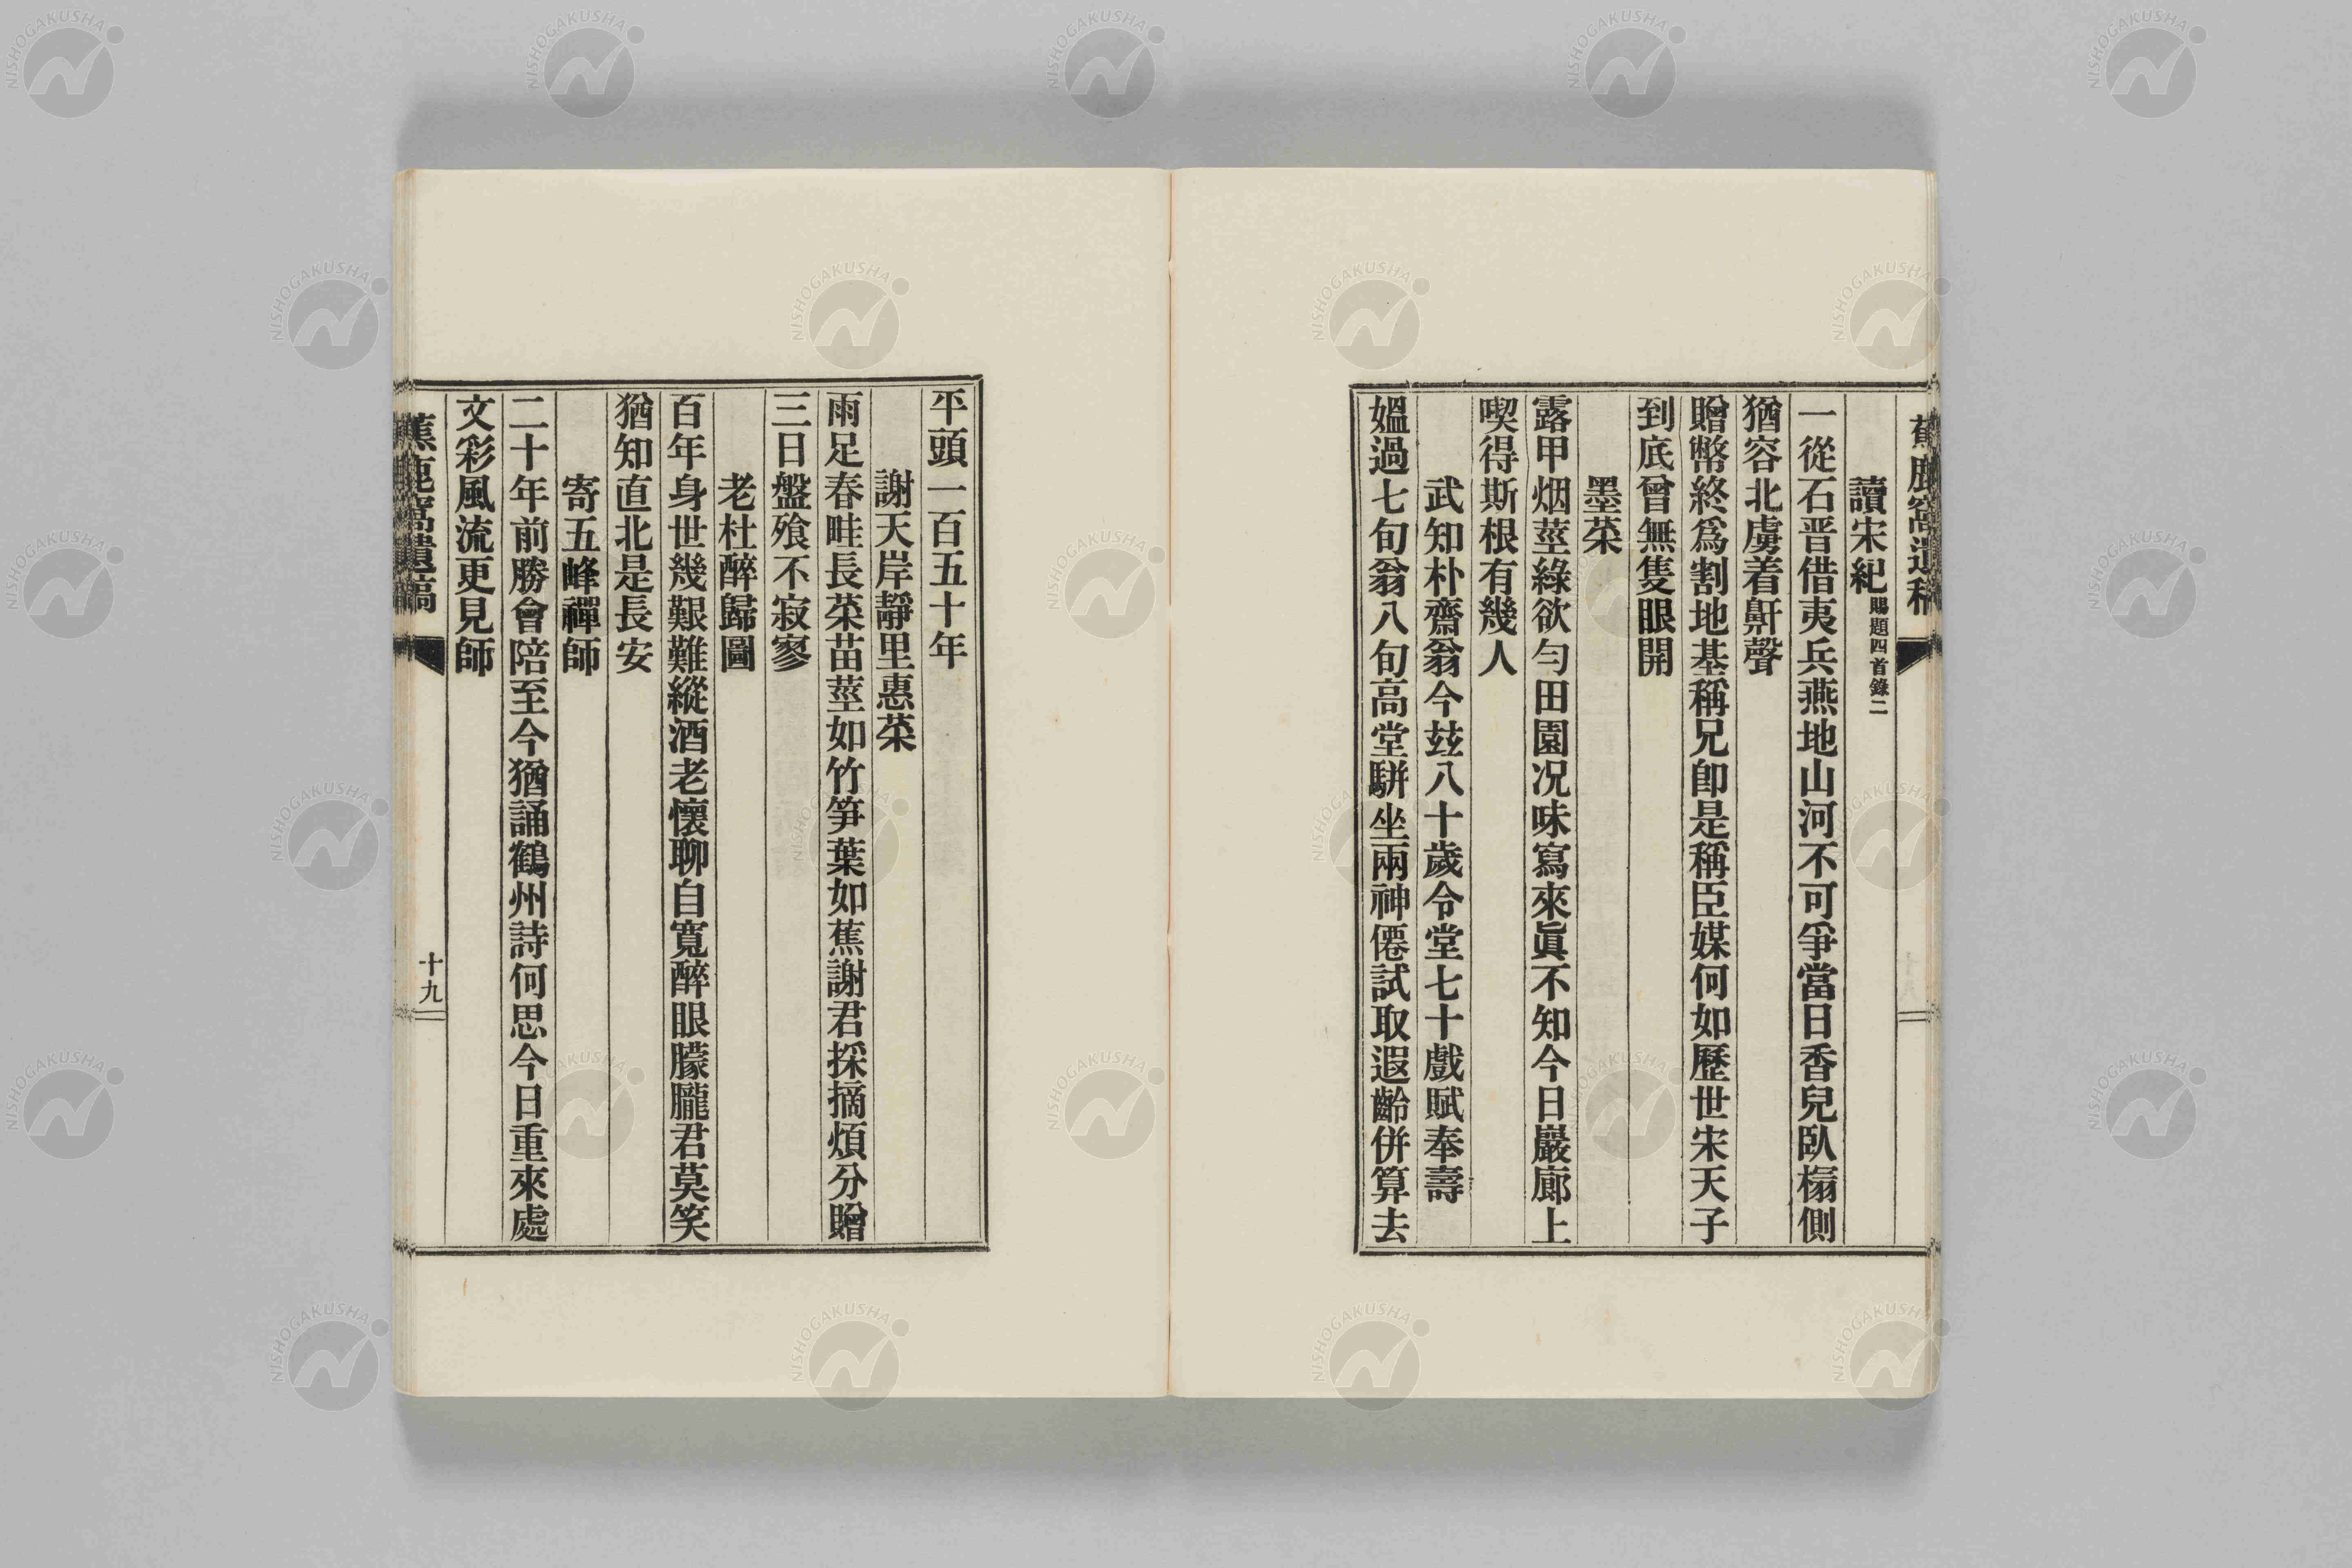 蕉鹿窩遺稿
讀宋紀賜題四首錄二
一從石晋借夷兵燕地山河不可爭當日香兒臥榻側
猶容北虜着鼾聲
贈幣終爲割地基稱兄卽是稱臣媒何如歷世宋天子
到底曾無隻眼開
墨菜
露甲烟莖綠欲勻田園况味寫來眞不知今日巖廊上
喫得斯根有幾人
武知朴齋翁今玆八十歲令堂七十戲賦奉壽
媼過七旬翁八旬高堂駢坐兩神僊試取遐齡併算去
平頭一百五十年
謝天岸靜里惠菜
雨足春畦長菜苗莖如竹笋葉如蕉謝君採摘煩分贈
三日盤飱不寂寥
老杜醉歸圖
百年身世幾艱難縱酒老懷聊自寬醉眼朦朧君莫笑
猶知直北是長安
寄五峰禪師
二十年前勝會陪至今猶誦鶴州詩何思今日重來處
文彩風流更見師
蕉鹿窩遺稿
十九
NISHOGAKUSHA